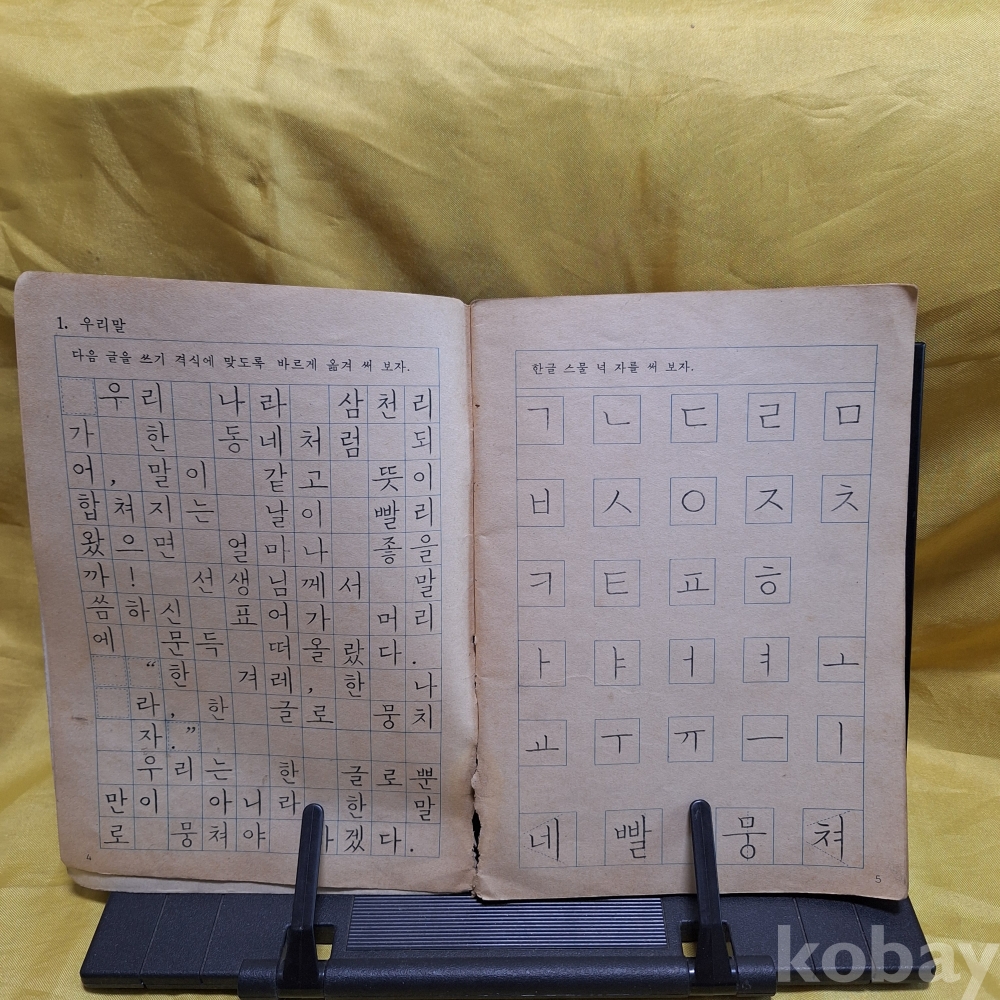 1. 우리말
다음 글을 쓰기 격식에 맞도록 바르게 옮겨 써 보자.
우리 나라 삼천리
가 한 동네처럼 되
어, 말이 같고 뜻이
합쳐지는 날이 빨리
왔으면 얼마나 좋을
까! 선생님께서 말
씀하신 표어가 머리
에 문득 떠올랐다.
“한 겨레, 한 나
라, 한 글로 뭉치
자.”
우리는 한 글로뿐
만이 아니라 한 말
로 뭉쳐야 겠다.
4
한글 스물 넉 자를 써 보자.
ㄱ ㄴ ㄷ ㄹ ㅁ
ㅂ ㅅ ㅇ ㅈ ㅊ
ㅋ ㅌ ㅍ ㅎ
ㅏ ㅑ ㅓ ㅕ ㅗ
ㅛ ㅜ ㅠ ㅡ ㅣ
네 빨 뭉 쳐
5
kobay